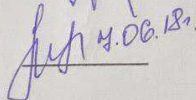 7.06.18г.